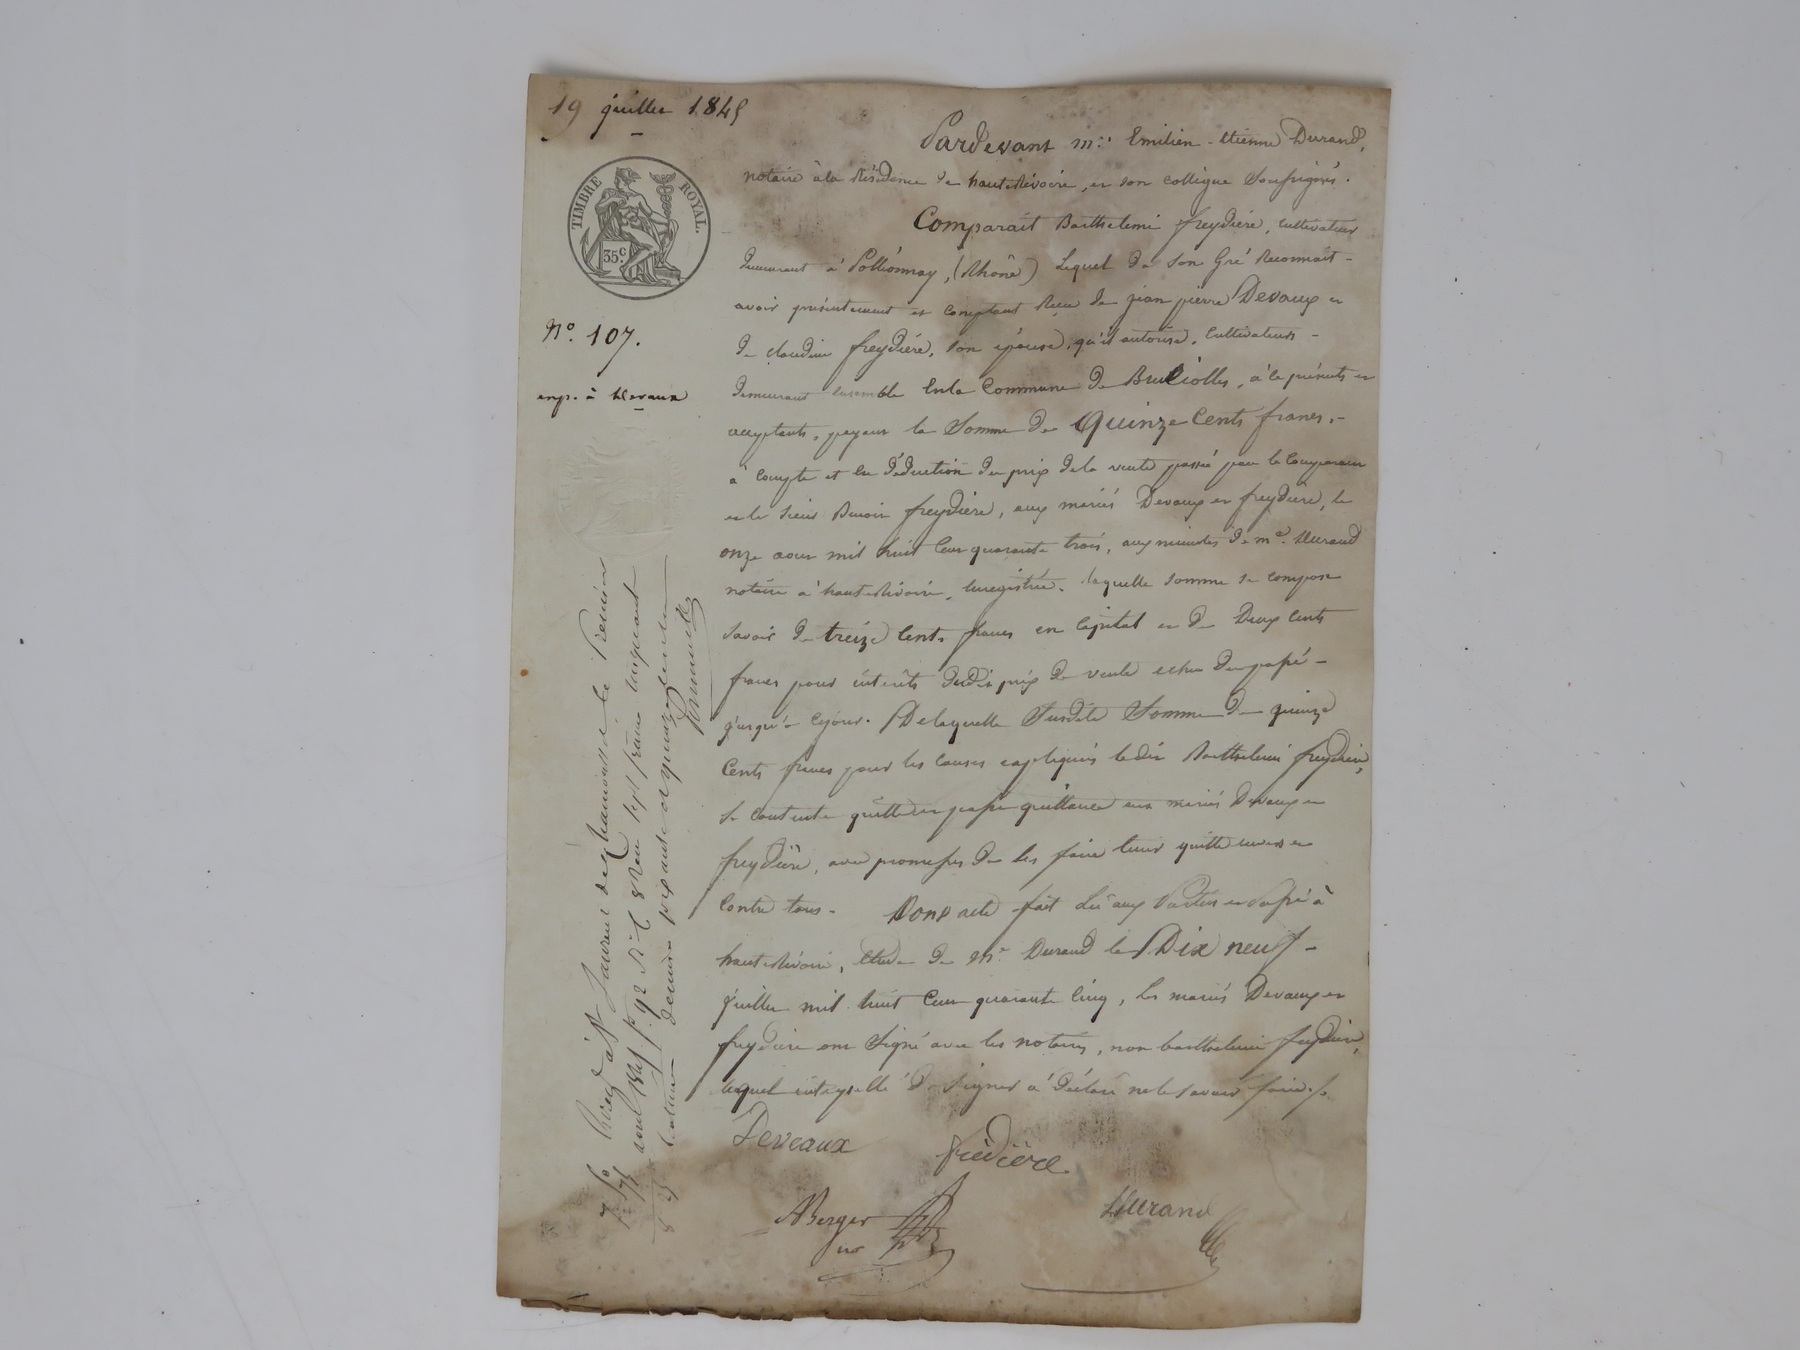 19 juillet 1845
Pardevant Me. Emilien-Etienne Durand,
notaire à la Résidence de hauterivoire, et son collègue Soussignés.
Comparait Barthelemi freydière, cultivateur
demeurant à Pollionnay, (Rhône) Lequel de Son Gré Reconnait
avoir présentement et comptant Reçu de jean pierre Devaux et
de claudine freydière, Son épouse, qu'il autorise, Cultivateurs
demeurant Ensemble En la Commune de Brulliolles, à ce présents et
acceptants, payeur la Somme de Quinze Cents francs,
à Compte et En déduction du prix de la vente passée par le Comparant
et le Sieur Benoit freydière, aux mariés Devaux et freydière, le
onze aout mil huit Cent quarante trois, aux minutes de me. Durand
notaire à hauterivoire, Enregistrée. laquelle Somme se compose
Savoir de treize Cents francs en Capital et de Deux Cents
francs pour intérêts dudit prix de vente echus du passé
jusqu'à ce jour. De laquelle Susdite Somme de quinze
Cents francs pour les Causes expliquées ledit Barthelemi freydière,
Se Contente quitte et passe quittance aux mariés Devaux et
freydière, avec promesse de les faire tenir quitte envers et
Contre tous. Dont acte fait Lu aux Parties et Passé à
hauterivoire, Etude de Me. Durand le Dix neuf
juillet mil huit Cent quarante Cinq, les mariés Devaux et
freydière ont Signé avec les notaires, non barthelemi freydière,
lequel interpellé de Signer a déclaré ne le Savoir faire.
Deveaux frédière
ABerger Durand
nre
TIMBRE ROYAL.
35c
No. 107.
exp. à Devaux
Enregé à St Laurent de Chamousset le Premier
aout 1845 fo. 92 Ro. C 8 Reçu sept francs cinquant
Centimes decime soixante et quinze centimes